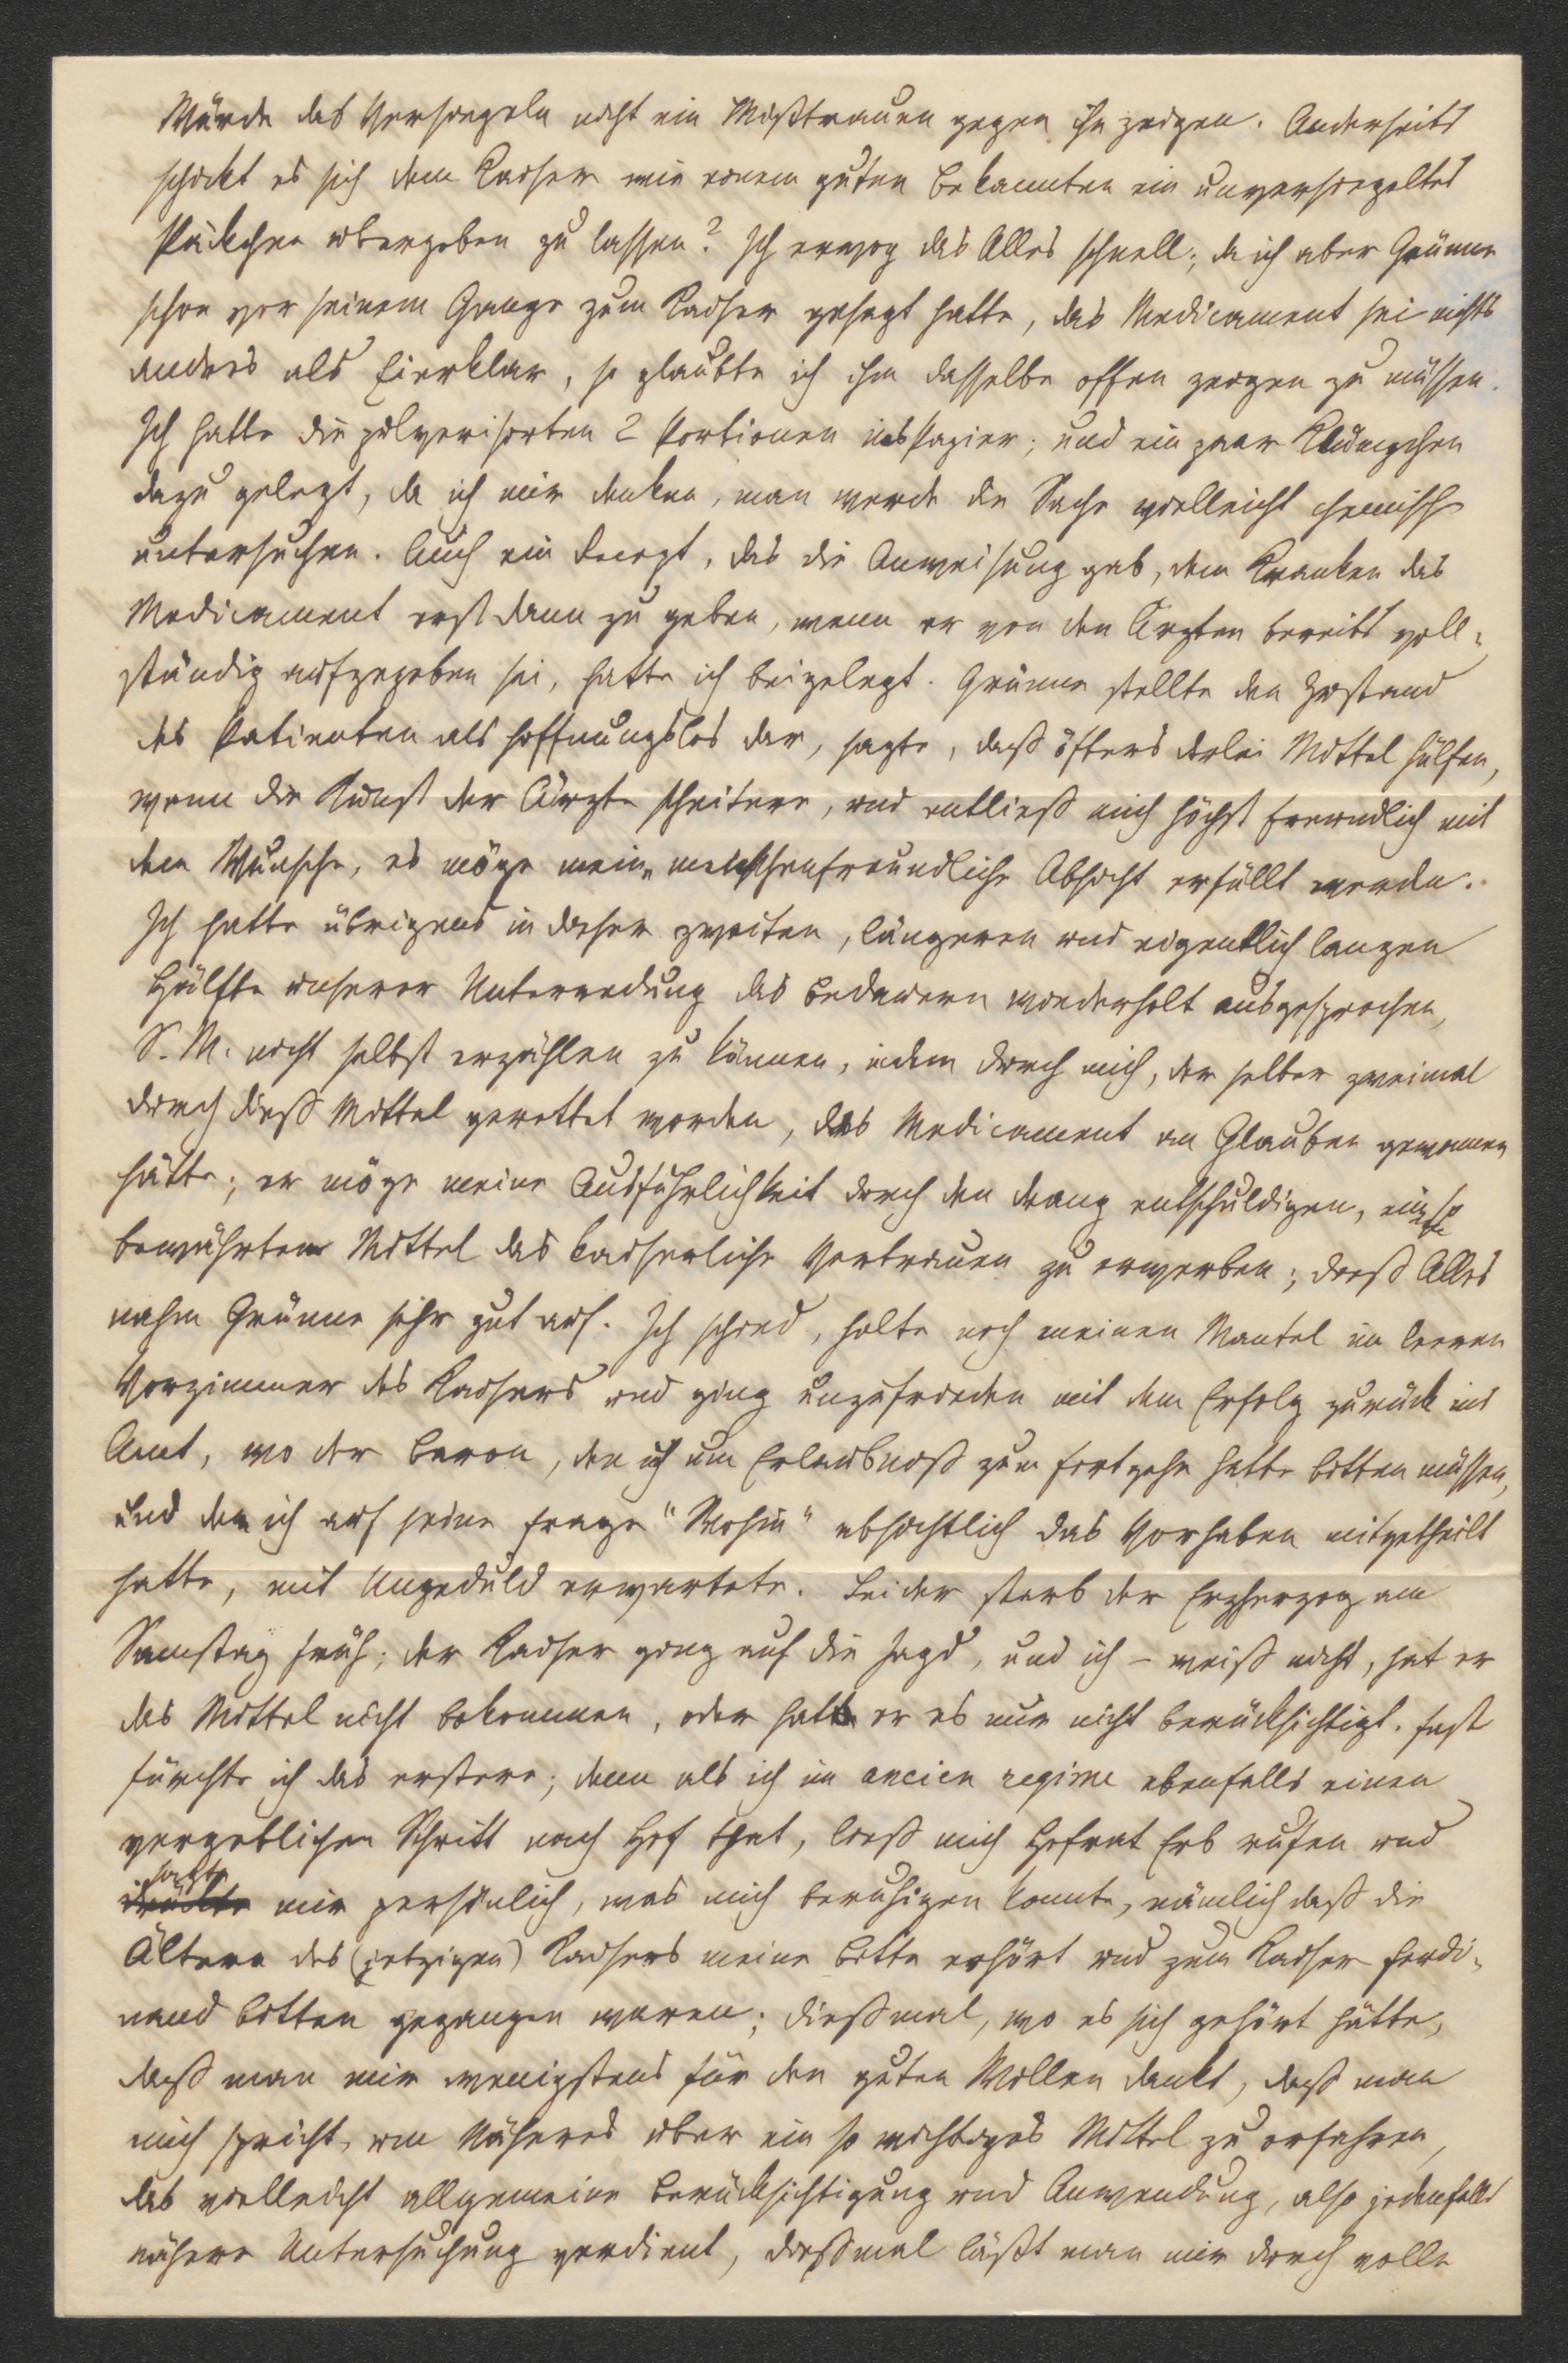 Würde das Versiegeln nicht ein Mißtrauen gegen ihn zeigen. Anderseits
schickt es sich dem Kaiser wie einem guten Bekannten ein unversiegeltes
Päckchen übergeben zu lassen? Ich erwog das Alles schnell; da ich aber Grünne
schon vor seinem Gange zum Kaiser gesagt hatte, das Medicament sei nichts
anders als Eierklar, so glaubte ich ihm dasselbe offen zeigen zu müssen.
Ich hatte die pulverisirten 2 Portionen ins Papier; und ein paar Klümpchen
dazu gelegt, da ich mir denken, man werde die Sache vielleicht chemisch
untersuchen. Auch ein Recept, das die Anweisung gab, dem Kranken das
Medicament erst dann zu geben, wenn er von den Ärzten bereits voll-
ständig aufgegeben sei, hatte ich beigelegt. Grünne stellte den Zustand
des Patienten als hoffnungslos dar, sagte, daß öfters derlei Mittel hülfen,
wenn die Kunst der Ärzte scheitere, und entließ mich höchst freundlich mit
dem Wunsche, es möge meine menschenfreundliche Absicht erfüllt werden.
Ich hatte übrigens in dieser zweiten, längeren und eigentlich langen
Hälfte unserer Unterredung das Bedauern wiederholt ausgesprochen,
S. M. nicht selbst erzählen zu können, indem durch mich, der selber zweimal
durch dieß Mittel gerettet worden, das Medicament an Glauben gewonnen
hätte; er möge meine Ausführlichkeit durch den Drang entschuldigen, einem so
bewährten Mittel das kaiserliche Vertrauen zu erwerben; dieß Alles
nahm Grünne sehr gut auf. Ich schied, holte noch meinen Mantel im leeren
Vorzimmer des Kaisers und ging unzufrieden mit dem Erfolg zurück ins
Amt, wo der Baron, den ich um Erlaubniß zum Fortgehn hatte bitten müssen,
und dem ich auf seine Frage "Wohin" absichtlich das Vorhaben mitgetheilt
hatte, mit Ungeduld erwartete. Leider starb der Erzherzog am
Samstag früh; der Kaiser ging auf die Jagd, und ich – weiß nicht, hat er
das Mittel nicht bekommen, oder hatte er es nur nicht berücksichtigt. Fast
fürchte ich das erstere; denn als ich im ancien regime ebenfalls einen
vergeblichen Schritt nach Hof that, ließ mich Hofrat Erb rufen und
sagte mir persönlich, was mich beruhigen konnte, nämlich daß die
Ältern des (jetzigen) Kaisers meine Bitte erhört und zum Kaiser Ferdi-
nand bitten gegangen waren; dießmal, wo es sich gehört hätte,
daß man mir wenigstens für den guten Willen dankt, daß man
mich spricht, um Näheres über ein so wichtiges Mittel zu erfahren,
das vielleicht allgemeine Berücksichtigung und Anwendung, also jedenfalls
nähere Untersuchung verdient, dießmal läßt man mir durch volle